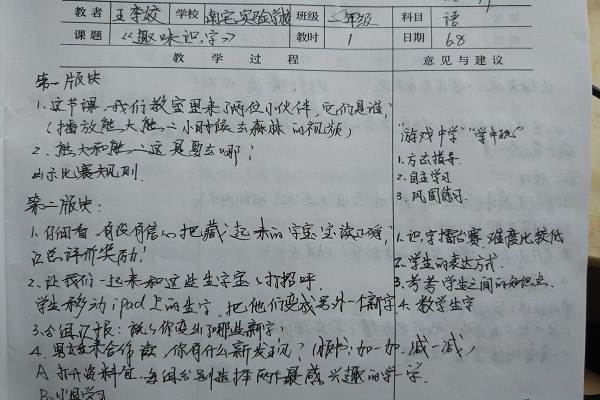 教者 王李姣 学校 南屯实验学校 班级 二年级 科目 语
课题 《趣味识字》 教时 1 日期 6.8
教学过程 意见与建议
第一版块
1.这节课,我们教室里来了两位小伙伴,它们是谁?
(播放熊大熊二小时候去森林的视频)
2.熊大和熊二这是要去哪?
出示比赛规则.
第二版块:
1.仔细看,有没有信心把藏起来的字宝宝读正确,
评价奖励!
2.让我们一起来和这些生字宝宝打招呼.
学生移动ipad上的生字,把他们变成另外一个新字
3.分组汇报:说说你遇到了哪些新字?
4.男女生来合作读,你有什么新发现?(板书:加一加,减一减)
A.打开资料包,每组分别选择两个最感兴趣的学一学.
B.小组学习
"游戏中学""学中玩"
1.方法指导.
2.自主学习.
3.巩固练习.
1.识字擂台赛,难度比较低
2.学生的表达方式.
3.考考学生之间的知识点.
4.教学生字